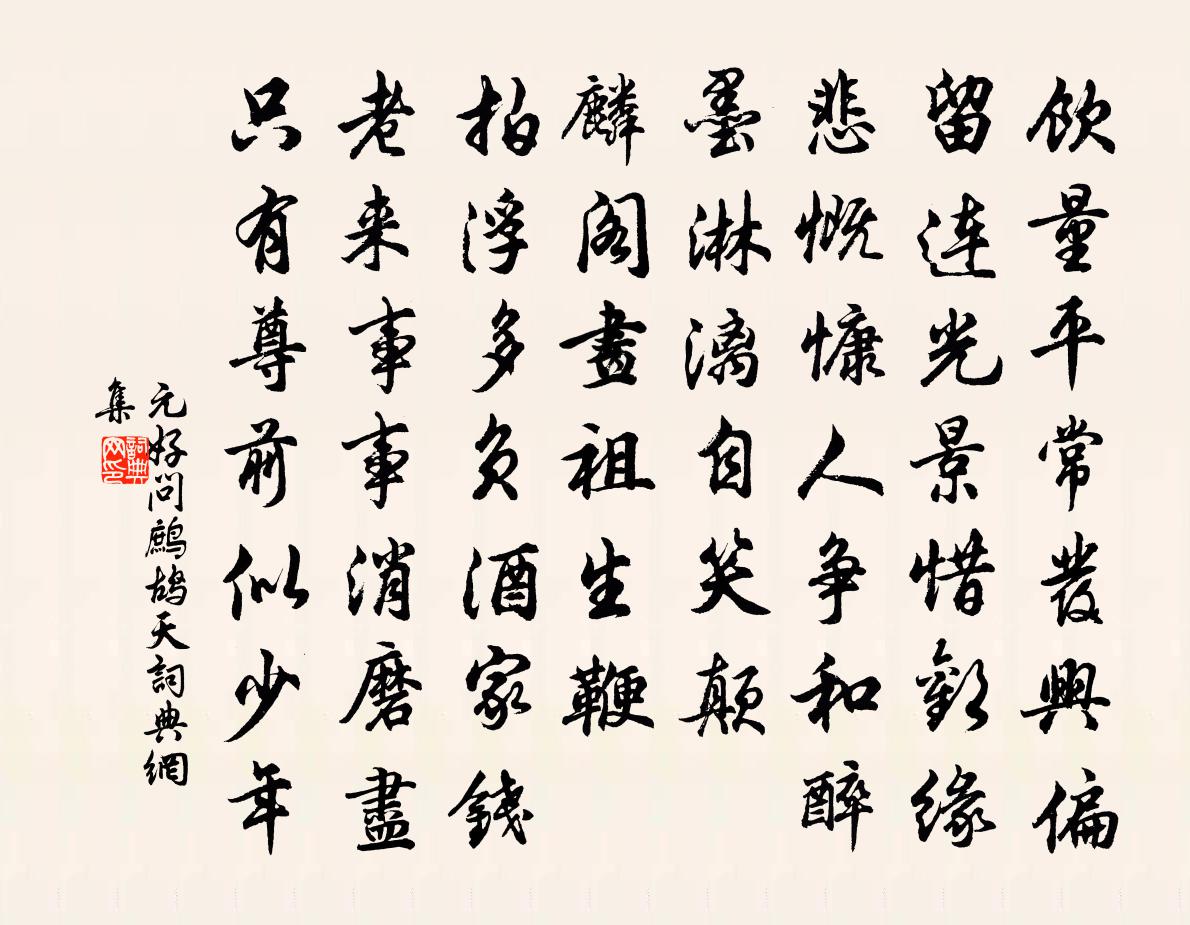 飲量平常發興偏
留連光景惜歡緣
悲慨慷人爭和醉
墨淋漓自笑顛
麟閣畫祖生鞭
拍浮多負酒家錢
老来事事消磨盡
只有尊前似少年
元好問鷓鴣天詞典網
集
詞典
网印